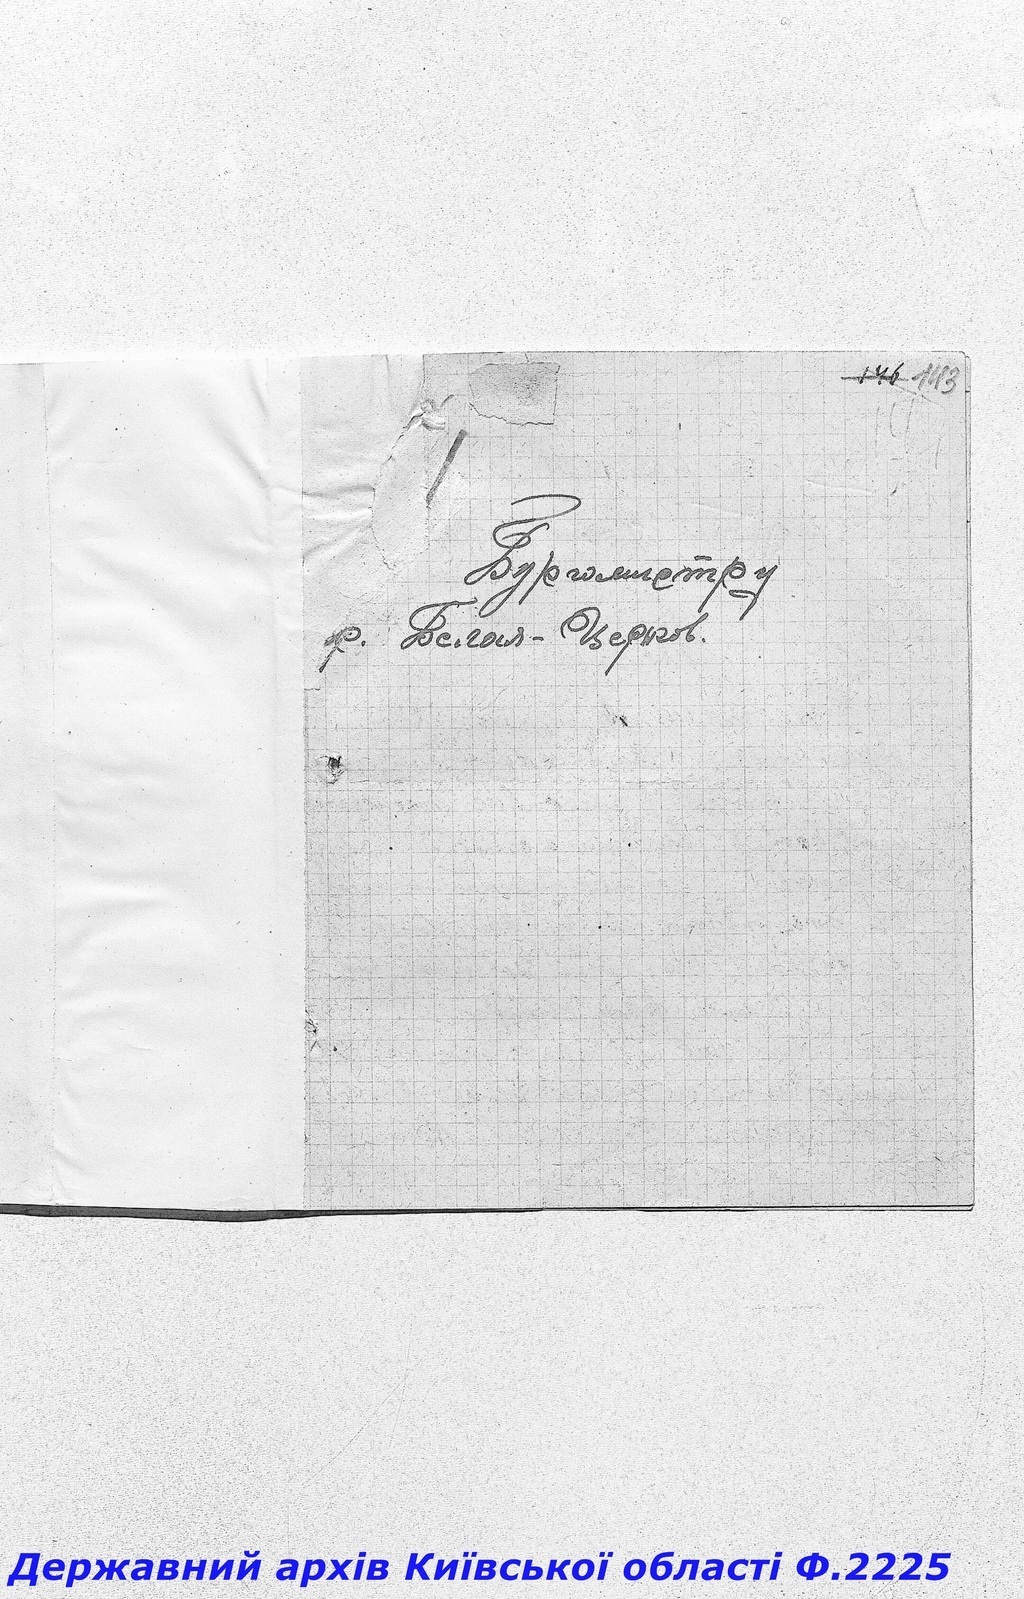 146 143
Бургомистру
гр. Белая-Церков.
Державний архів Київської області Ф.2225